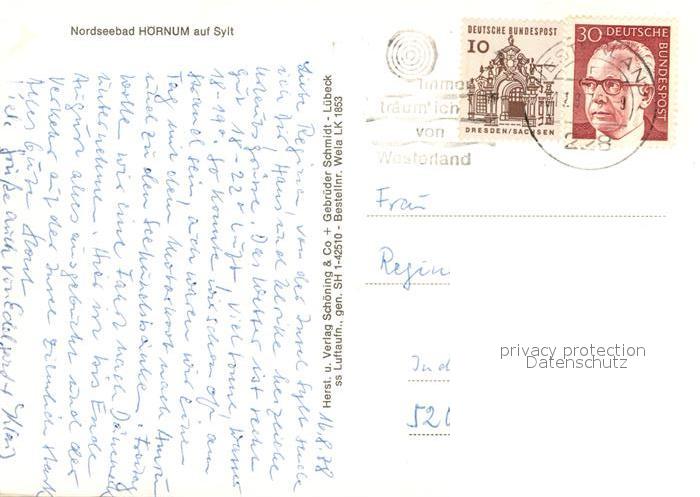 Nordseebad HÖRNUM auf Sylt
DEUTSCHE BUNDESPOST
10
DRESDEN/SACHSEN
30
DEUTSCHE BUNDESPOST
träum' ich
von
Westerland
228
Herst. u. Verlag Schöning & Co + Gebrüder Schmidt - Lübeck
ss Luftaufn., gen. SH 1-42510 - Bestellnr. Wela LK 1653
16.8.78
Liebe Regina, von der Insel Sylt sende
ich Dir, Hans und Ulrike herzliche
Urlaubsgrüße. Das Wetter ist sehr
gut 18-22° Luft, viel Sonne, Wasser
18-19°. So konnte wir schon oft am
Strand sein, auch waren wir einen
Tag mit dem Motorboot nach Amrum
und zu den Seehundsbänken. Freitag
wollen wir eine Fahrt nach Dänemark
unternehmen. Hier ist bis Ende
August alles ausgebucht und der
Verkehr auf der Insel ziemlich stark
Alles Gute
Viele Grüße auch von
Frau
Regin
Ind
520
privacy protection
Datenschutz